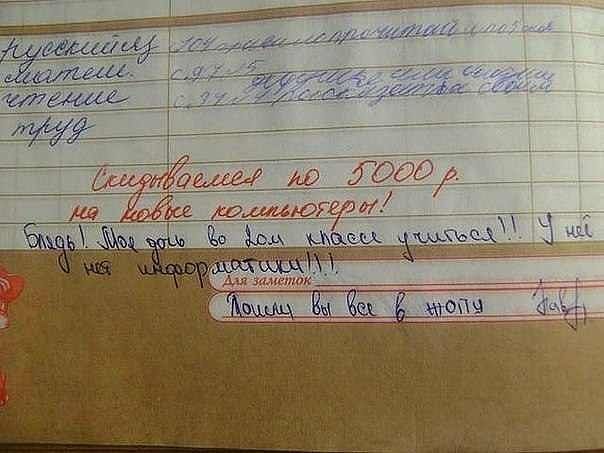 русский яз 104 правило прочитай
матем. с. 97 15
чтение с. 94
труд
Скидываемся по 5000 р.
на новые компьютеры!
Блядь! Моя дочь во 2ом классе учиться!! У неё
нет информатики!!!!
Для заметок
Пошли вы все в жопу